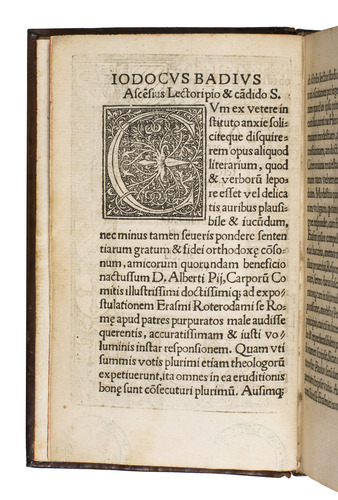 IODOCVS BADIVS
Ascẽsius Lectori pio & cãdido S.
CVm ex vetere in
stituto anxie soli⸗
citeque disquire⸗
rem opus aliquod
literarium, quod
& verborũ lepo⸗
re esset vel delica
tis auribus plausi⸗
bile & iucũdum,
nec minus tamen seueris pondere senten
tiarum gratum & fidei orthodoxę cõso⸗
num, amicorum quorundam beneficio
nactus sum D. Alberti Pij, Carporũ Co
mitis illustrissimi doctissimiq; ad expo⸗
stulationem Erasmi Roterodami se Ro⸗
mę apud patres purpuratos male audisse
querentis, accuratissimam & iusti vo⸗
luminis instar responsionem. Quam vti
summis votis plurimi etiam theologorũ
expetiuerunt, ita omnes in ea eruditionis
bonę sunt cõsecuturi plurimũ. Ausimq;